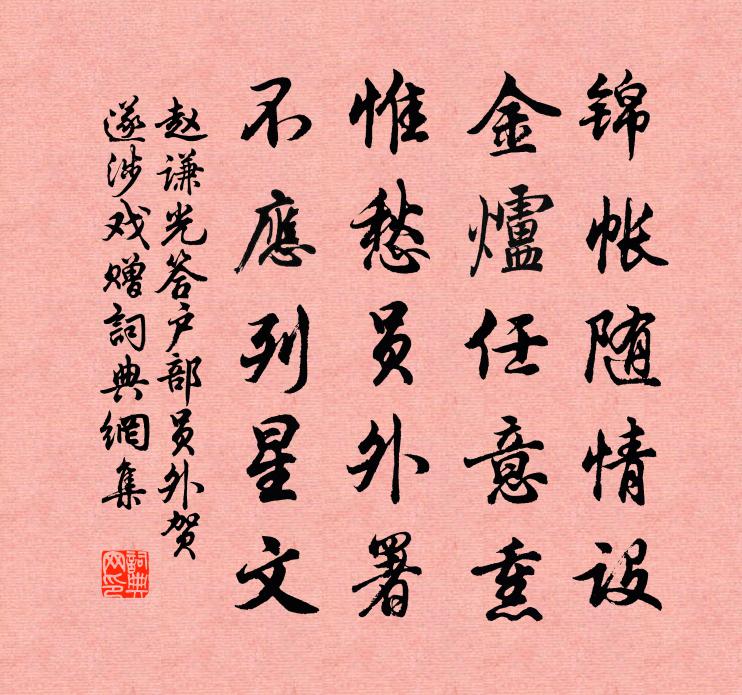 锦帐随情设
金爐任意熏
惟愁员外署
不應列星文
赵谦光答户部员外贺
遂涉戏赠詞典網集
詞典网印